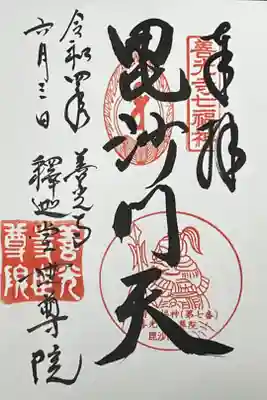 奉拝
善光寺七福神
毘沙門天
神(第七番)
毘沙
善光寺
釋迦堂世尊院
令和四年
六月三日